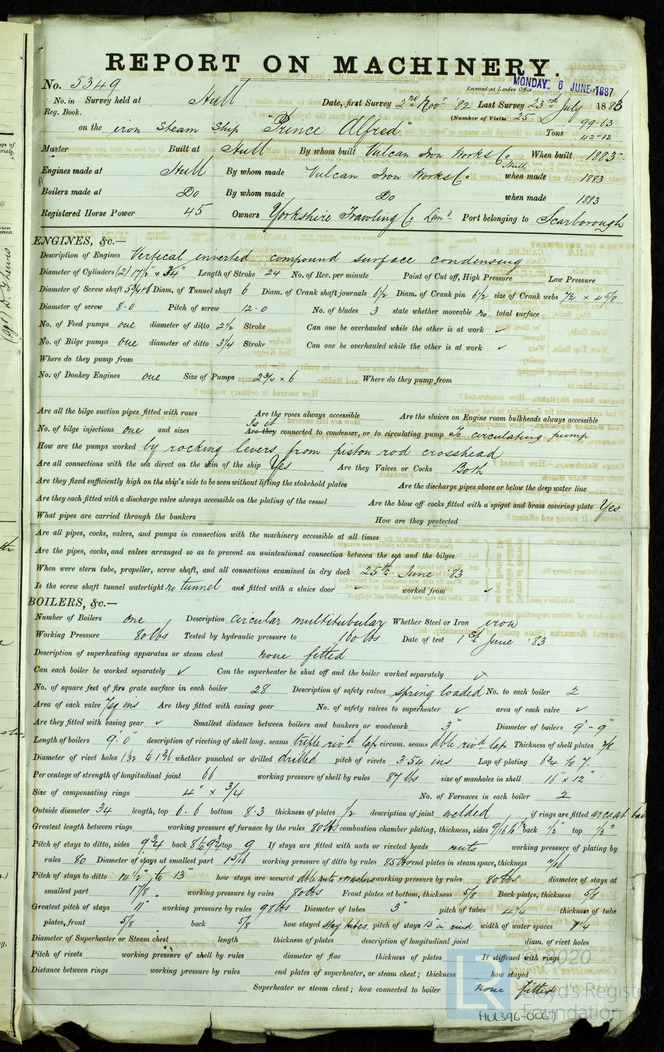 REPORT ON MACHINERY.
No. 5349
Received at London Office MONDAY. 6 JUNE 1887
No. in Survey held at Hull Date, first Survey 2nd Nov 82 Last Survey 23rd July 1883
Reg. Book. (Number of Visits 25)
on the iron Steam Ship "Prince Alfred" Tons 99.63
42.12
Master Built at Hull By whom built Vulcan Iron Works Co Hull When built 1883
Engines made at Hull By whom made Vulcan Iron Works Co when made 1883
Boilers made at Do By whom made Do when made 1883
Registered Horse Power 45 Owners Yorkshire Trawling Co Limd Port belonging to Scarborough
ENGINES, &c.—
Description of Engines Vertical inverted compound surface condensing
Diameter of Cylinders (2) 17½ × 34" Length of Stroke 24 No. of Rev. per minute Point of Cut off, High Pressure Low Pressure
Diameter of Screw shaft Diam. of Tunnel shaft 6 Diam. of Crank shaft journals 6½ Diam. of Crank pin 6½ size of Crank webs 7¾ × 4⅝
Diameter of screw 8.0 Pitch of screw 12.0 No. of blades 3 state whether moveable no total surface
No. of Feed pumps one diameter of ditto 2½ Stroke Can one be overhauled while the other is at work ✓
No. of Bilge pumps one diameter of ditto 3¼ Stroke Can one be overhauled while the other is at work ✓
Where do they pump from
No. of Donkey Engines one Size of Pumps 2¾ × 6 Where do they pump from
Are all the bilge suction pipes fitted with roses Are the roses always accessible Are the sluices on Engine room bulkheads always accessible
No. of bilge injections one and sizes Is it Are they connected to condenser, or to circulating pump To circulating pump
How are the pumps worked by rocking levers from piston rod crosshead
Are all connections with the sea direct on the skin of the ship Yes Are they Valves or Cocks Both
Are they fixed sufficiently high on the ship's side to be seen without lifting the stokehold plates Are the discharge pipes above or below the deep water line
Are they each fitted with a discharge valve always accessible on the plating of the vessel Are the blow off cocks fitted with a spigot and brass covering plate Yes
What pipes are carried through the bunkers How are they protected
Are all pipes, cocks, valves, and pumps in connection with the machinery accessible at all times
Are the pipes, cocks, and valves arranged so as to prevent an unintentional connection between the sea and the bilges
When were stern tube, propeller, screw shaft, and all connections examined in dry dock 25th June '83
Is the screw shaft tunnel watertight no tunnel and fitted with a sluice door ✓ worked from ✓
BOILERS, &c.—
Number of Boilers one Description circular multitubular Whether Steel or Iron iron
Working Pressure 80 lbs Tested by hydraulic pressure to 160 lbs Date of test 1st June '83
Description of superheating apparatus or steam chest none fitted
Can each boiler be worked separately ✓ Can the superheater be shut off and the boiler worked separately ✓
No. of square feet of fire grate surface in each boiler 28 Description of safety valves spring loaded No. to each boiler 2
Area of each valve Are they fitted with easing gear No. of safety valves to superheater ✓ area of each valve ✓
Are they fitted with easing gear ✓ Smallest distance between boilers and bunkers or woodwork 3" Diameter of boilers 9'-9"
Length of boilers 9'0" description of riveting of shell long. seams treble rivtd lap circum. seams dble rivtd lap Thickness of shell plates
Diameter of rivet holes whether punched or drilled drilled pitch of rivets 3.54 ins Lap of plating 6¾ & 7
Per centage of strength of longitudinal joint 66 working pressure of shell by rules 87 lbs size of manholes in shell 16" × 12"
Size of compensating rings 4" × ¾ No. of Furnaces in each boiler 2
Outside diameter 34 length, top 6.6 bottom 8.3 thickness of plates ½ description of joint welded if rings are fitted
Greatest length between rings working pressure of furnace by the rules 80 lbs combustion chamber plating, thickness, sides back ½" top ½"
Pitch of stays to ditto, sides back top 9 If stays are fitted with nuts or riveted heads nuts working pressure of plating by
rules 80 Diameter of stays at smallest part working pressure of ditto by rules 85 lbs end plates in steam space, thickness
Pitch of stays to ditto how stays are secured working pressure by rules 80 lbs diameter of stays at
smallest part 1⅞ working pressure by rules 80 lbs Front plates at bottom, thickness ⅝ Back plates, thickness ⅝
Greatest pitch of stays 11" working pressure by rules 90 lbs Diameter of tubes 3" pitch of tubes 4¼ thickness of tube
plates, front ⅝ back ⅝ how stayed stay tubes pitch of stays width of water spaces
Diameter of Superheater or Steam chest length thickness of plates description of longitudinal joint diam. of rivet holes
Pitch of rivets working pressure of shell by rules diameter of flue thickness of plates If stiffened with rings
Distance between rings working pressure by rules end plates of superheater, or steam chest; thickness how stayed
Superheater or steam chest; how connected to boiler none fitted
© 2020
Lloyd's Register
Foundation
HUL396-0067